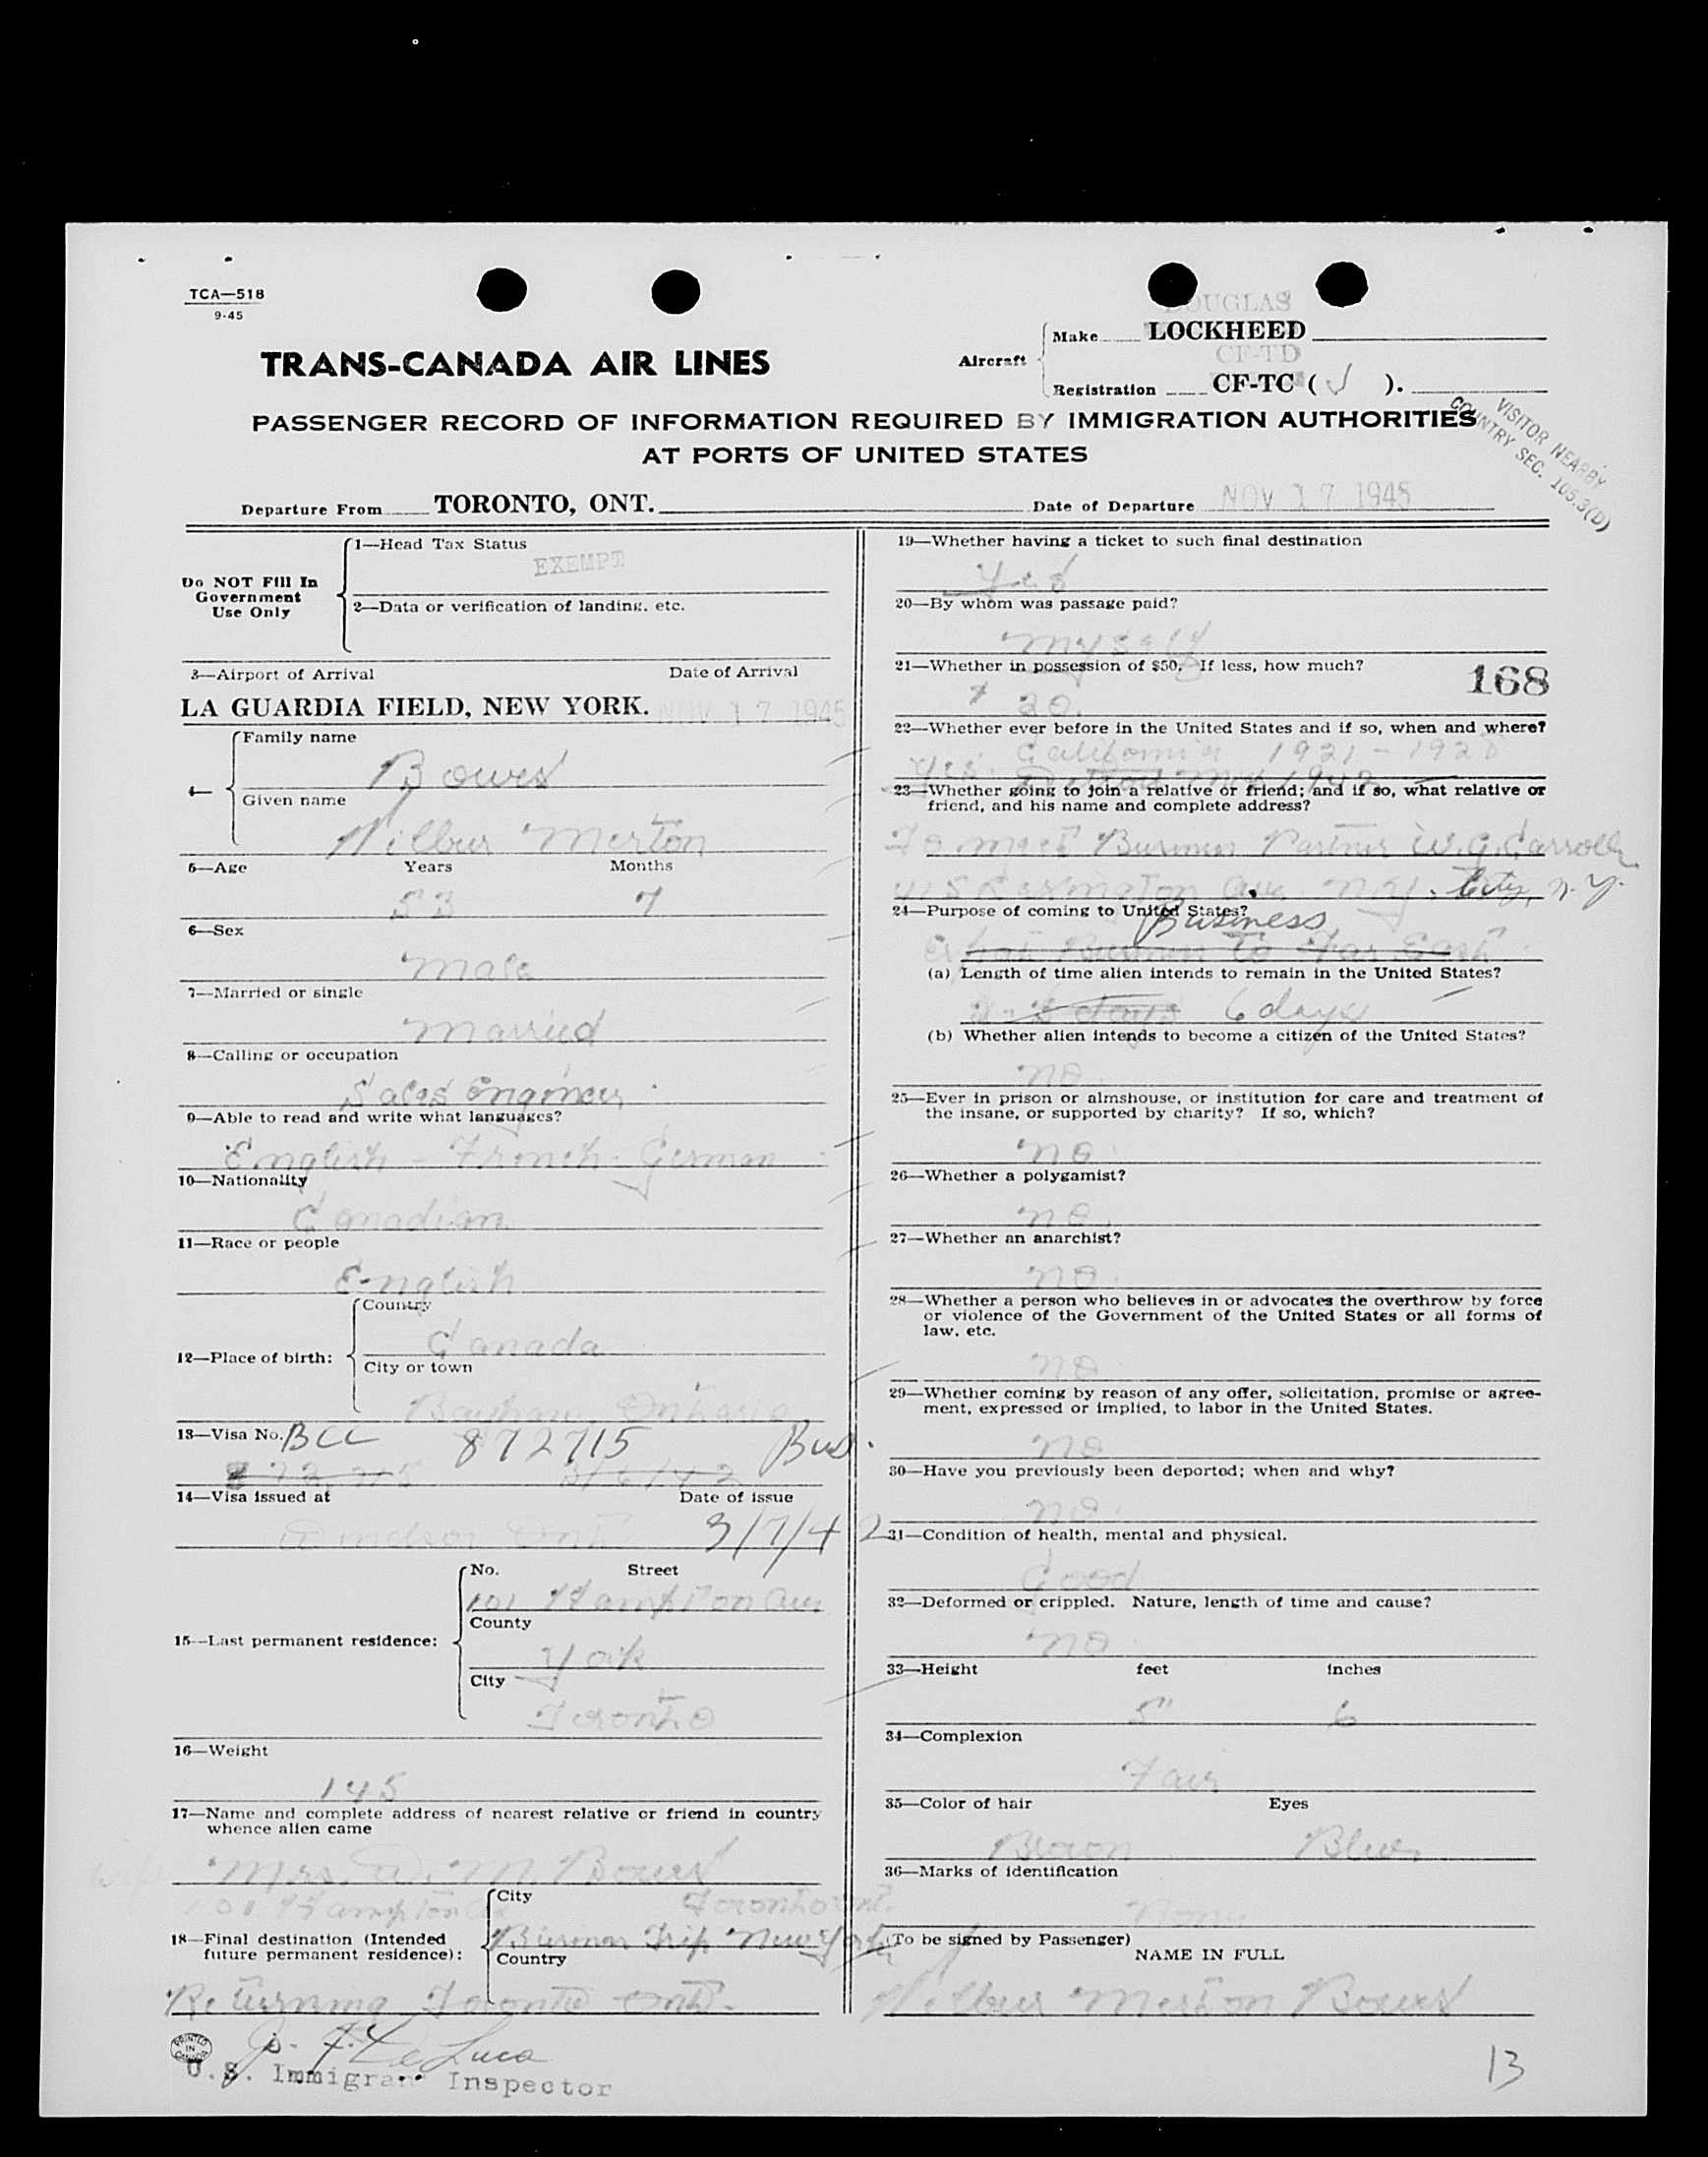 TCA—518
9-45
DOUGLAS
Make LOCKHEED
CF-TD
TRANS-CANADA AIR LINES
Aircraft
Registration CF-TC ( ).
PASSENGER RECORD OF INFORMATION REQUIRED BY IMMIGRATION AUTHORITIES
AT PORTS OF UNITED STATES
VISITOR NEARBY
COUNTRY SEC. 105.3(D)
Departure From TORONTO, ONT. Date of Departure NOV 17 1945
Do NOT Fill In
Government
Use Only
1—Head Tax Status
EXEMPT
2—Data or verification of landing, etc.
3—Airport of Arrival Date of Arrival
LA GUARDIA FIELD, NEW YORK. NOV 17 1945
4—
Family name
Bowes
Given name
Wilbur Merton
5—Age Years Months
53 7
6—Sex
Male
7—Married or single
Married
8—Calling or occupation
Sales Engineer
9—Able to read and write what languages?
English - French - German
10—Nationality
Canadian
11—Race or people
English
12—Place of birth:
Country
Canada
City or town
Bayham Ontario
13—Visa No. BCC 872715 Bus.
872715
14—Visa issued at Date of issue
Windsor Ont 3/7/42
15—Last permanent residence:
No. Street
101 Hampton Ave
County
York
City
Toronto
16—Weight
145
17—Name and complete address of nearest relative or friend in country
whence alien came
wife Mrs. W. M. Bowes
101 Hampton Ave Toronto Ont.
18—Final destination (Intended
future permanent residence):
City
Business Trip New York
Country
Returning Toronto Ont.
J. F. De Luca
U.S. Immigrant Inspector
PRINTED
IN
CANADA
19—Whether having a ticket to such final destination
Yes
20—By whom was passage paid?
Myself
21—Whether in possession of $50. If less, how much?
20.
168
22—Whether ever before in the United States and if so, when and where?
Yes. California 1921 - 1928
Detroit 1942
23—Whether going to join a relative or friend; and if so, what relative or
friend, and his name and complete address?
To meet Business Partner W.G. Carroll
Lexington Ave. N.Y. City, N.Y.
24—Purpose of coming to United States?
Business
Export Business to Far East
(a) Length of time alien intends to remain in the United States?
days 6 days
(b) Whether alien intends to become a citizen of the United States?
no
25—Ever in prison or almshouse, or institution for care and treatment of
the insane, or supported by charity? If so, which?
no
26—Whether a polygamist?
no
27—Whether an anarchist?
no
28—Whether a person who believes in or advocates the overthrow by force
or violence of the Government of the United States or all forms of
law, etc.
no
29—Whether coming by reason of any offer, solicitation, promise or agree-
ment, expressed or implied, to labor in the United States.
no
30—Have you previously been deported; when and why?
no
31—Condition of health, mental and physical.
Good
32—Deformed or crippled. Nature, length of time and cause?
no
33—Height feet inches
5" 6
34—Complexion
Fair
35—Color of hair Eyes
Brown Blue
36—Marks of identification
None
(To be signed by Passenger)
NAME IN FULL
Wilbur Merton Bowes
13